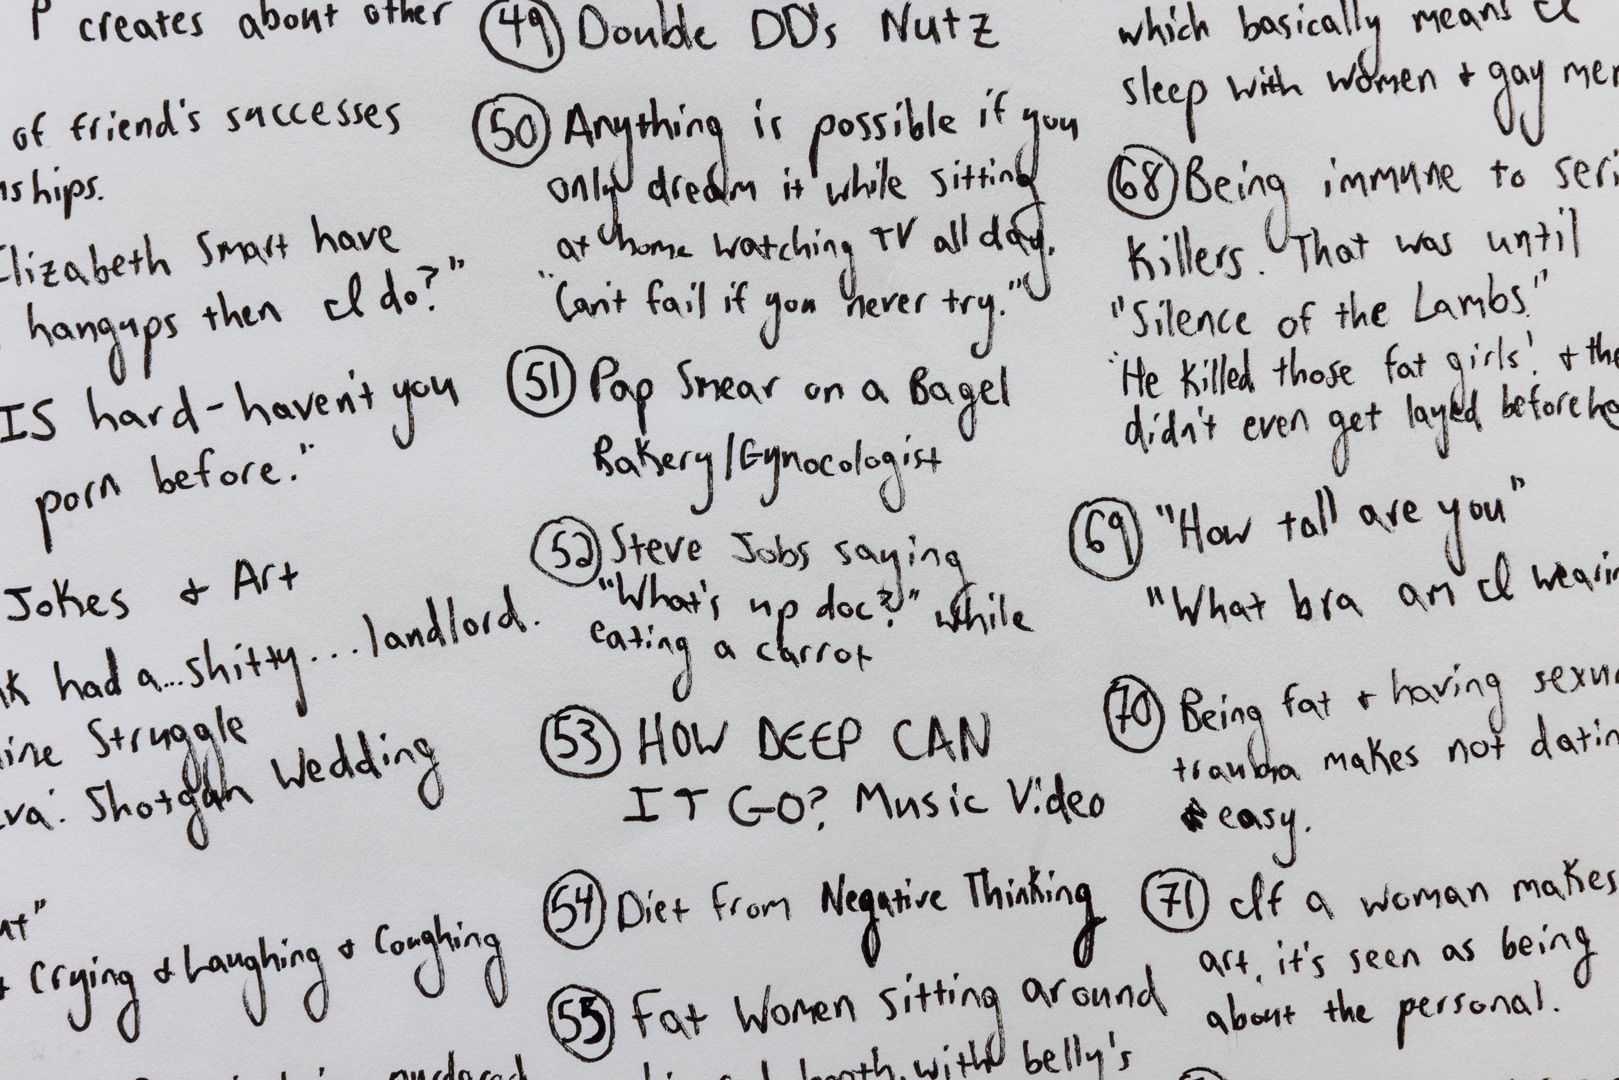 P creates about other
of friend's successes
ships.
Elizabeth Smart have
hangups then I do?"
IS hard-haven't you
porn before."
Jokes + Art
had a...shitty...landlord.
Struggle
Shotgun Wedding
+ Crying + Laughing + Coughing
murdered
49 Double DD's Nutz
50 Anything is possible if you
only dream it while sitting
at home watching TV all day.
"Can't fail if you never try."
51 Pap Smear on a Bagel
Bakery/Gynocologist
52 Steve Jobs saying
"What's up doc?" while
eating a carrot
53 HOW DEEP CAN
IT GO? Music Video
54 Diet from Negative Thinking
55 Fat Women sitting around
booth, with belly's
which basically means I
sleep with women + gay men
68 Being immune to seri
Killers. That was until
"Silence of the Lambs."
"He killed those fat girls! + the
didn't even get layed before he
69 "How tall are you"
"What bra am I wearin
70 Being fat + having sexu
trauma makes not datin
easy.
71 If a woman makes
art, it's seen as being
about the personal.